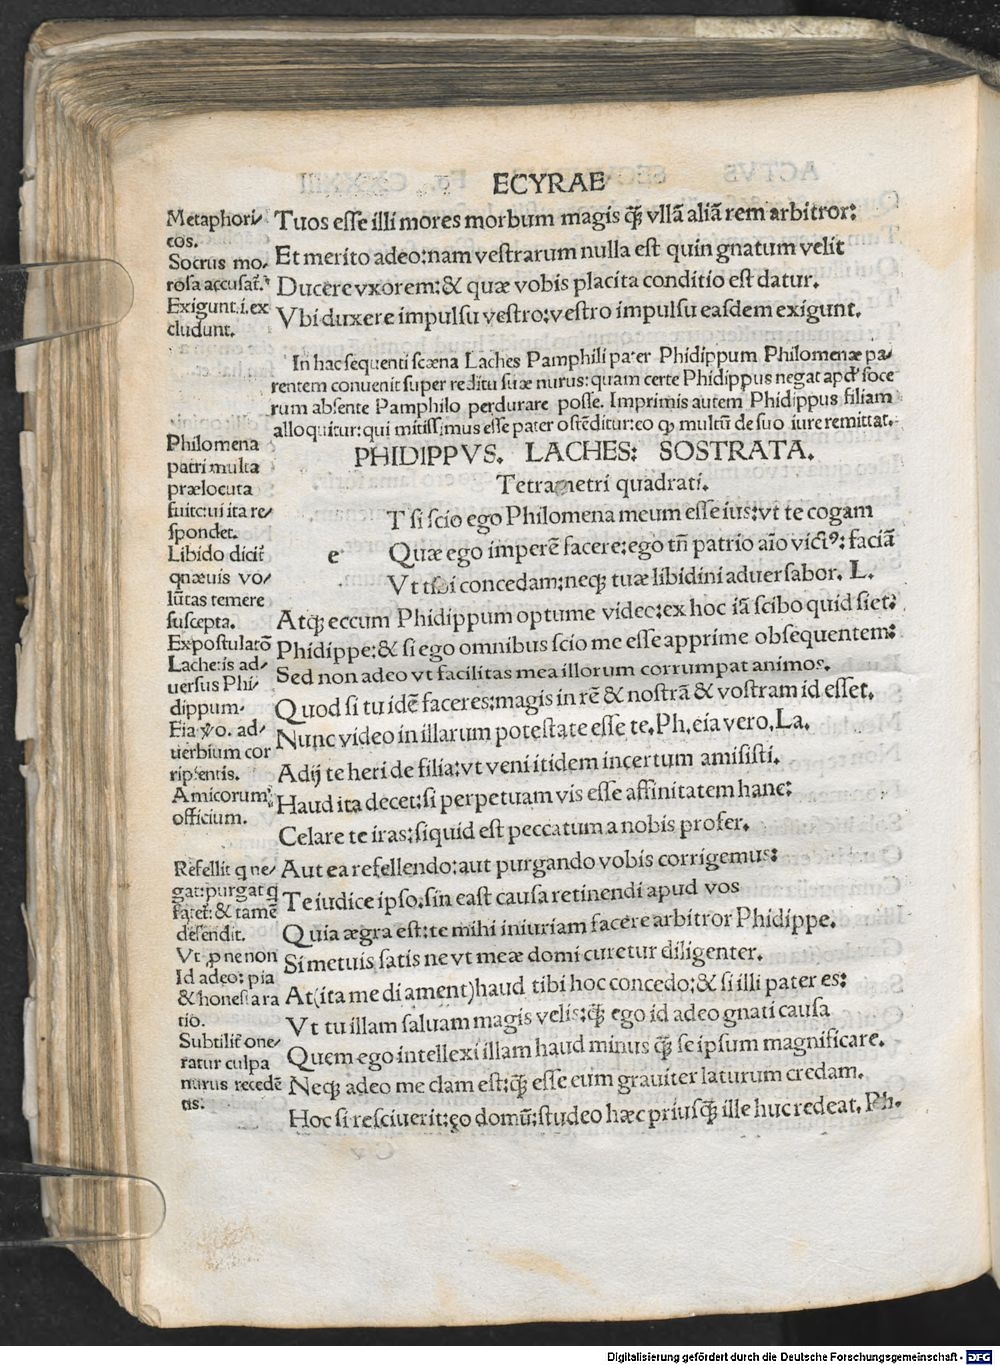 ECYRAE
Metaphori/
cos.
Socrus mo.
rosa accusat̃.
Exigunt.i.ex
cludunt.
Tuos esse illi mores morbum magis q̃ꝫ vllã aliã rem arbitror:
Et merito adeo:nam vestrarum nulla est quin gnatum velit
Ducere vxorem:& quæ vobis placita conditio est datur.
Vbi duxere impulsu vestro:vestro impulsu easdem exigunt.
In hac sequenti scæna Laches Pamphili pater Phidippum Philomenæ pa/
rentem conuenit super reditu suæ nurus:quam certe Phidippus negat apd' soce
rum absente Pamphilo perdurare posse. Imprimis autem Phidippus filiam
alloquitur:qui mitissimus esse pater ostẽditur:eo ꝙ multũ de suo iure remittat.
PHIDIPPVS. LACHES: SOSTRATA.
Tetrametri quadrati.
Philomena
patri multa
prælocuta
fuit:cui ita re/
spondet.
Libido dicit̃
quæuis vo/
lũtas temere
suscepta.
Expostulatõ
Lachetis ad/
uersus Phi/
dippum.
Eia ṽo. ad/
uerbium cor
ripientis.
Amicorum
officium.
Refellit q ne/
gat:purgat q
fatet̃:& tamẽ
defendit.
Vt ꝓ ne non
Id adeo: pia
& honesta ra
tio.
Subtilit̃ one/
ratur culpa
nurus recedẽ
tis.
e T si scio ego Philomena meum esse ius:vt te cogam
Quæ ego imperẽ facere:ego tñ patrio aĩo victꝰ: faciã
Vt tibi concedam:neqꝫ tuæ libidini aduersabor. L.
Atqꝫ eccum Phidippum optume video:ex hoc iã scibo quid siet:
Phidippe:& si ego omnibus scio me esse apprime obsequentem:
Sed non adeo vt facilitas mea illorum corrumpat animos.
Quod si tu idẽ faceres:magis in rẽ & nostrã & vostram id esset.
Nunc video in illarum potestate esse te. Ph. eia vero. La.
Adij te heri de filia:vt veni itidem incertum amisisti.
Haud ita decet:si perpetuam vis esse affinitatem hanc:
Celare te iras:siquid est peccatum a nobis profer.
Aut ea refellendo:aut purgando vobis corrigemus:
Te iudice ipso.sin east causa retinendi apud vos
Quia ægra est:te mihi iniuriam facere arbitror Phidippe.
Si metuis satis ne vt meæ domi curetur diligenter.
At(ita me di ament)haud tibi hoc concedo:& si illi pater es:
Vt tu illam saluam magis velis:q̃ꝫ ego id adeo gnati causa
Quem ego intellexi illam haud minus q̃ꝫ se ipsum magnificare.
Neqꝫ adeo me clam est:q̃ꝫ esse eum grauiter laturum credam.
Hoc si resciuerit:eo domũ:studeo hæc priusq̃ꝫ ille huc redeat. Ph.
Digitalisierung gefördert durch die Deutsche Forschungsgemeinschaft - DFG